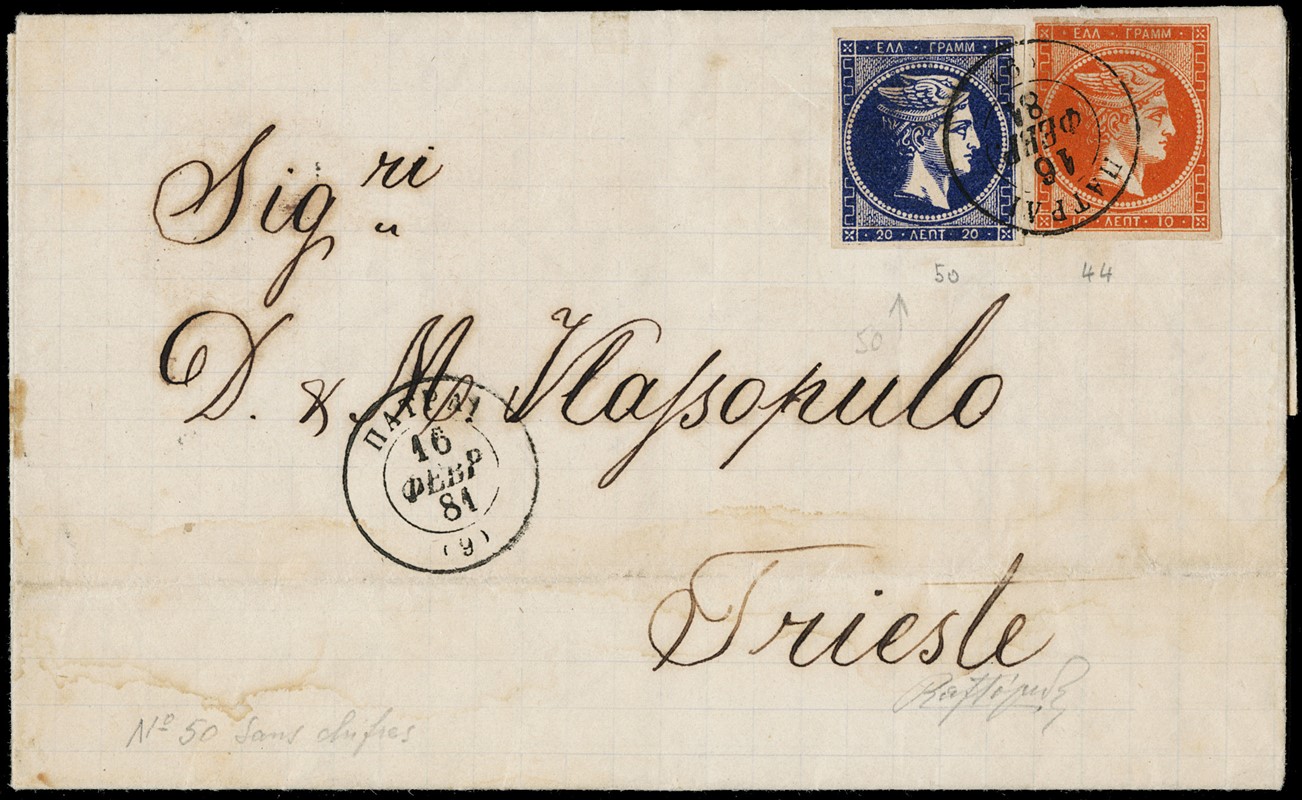 ΕΛΛ ΓΡΑΜΜ
20 ΛΕΠΤ 20
ΕΛΛ ΓΡΑΜΜ
ΛΕΠΤ 10
ΠΑΤΡΑΙ
16
ΦΕΒΡ
81
(9)
50
44
50
Sigri
D. & M. Klassopulo
ΠΑΤΡΑΙ
16
ΦΕΒΡ
81
(9)
Trieste
No 50 Sans chifres